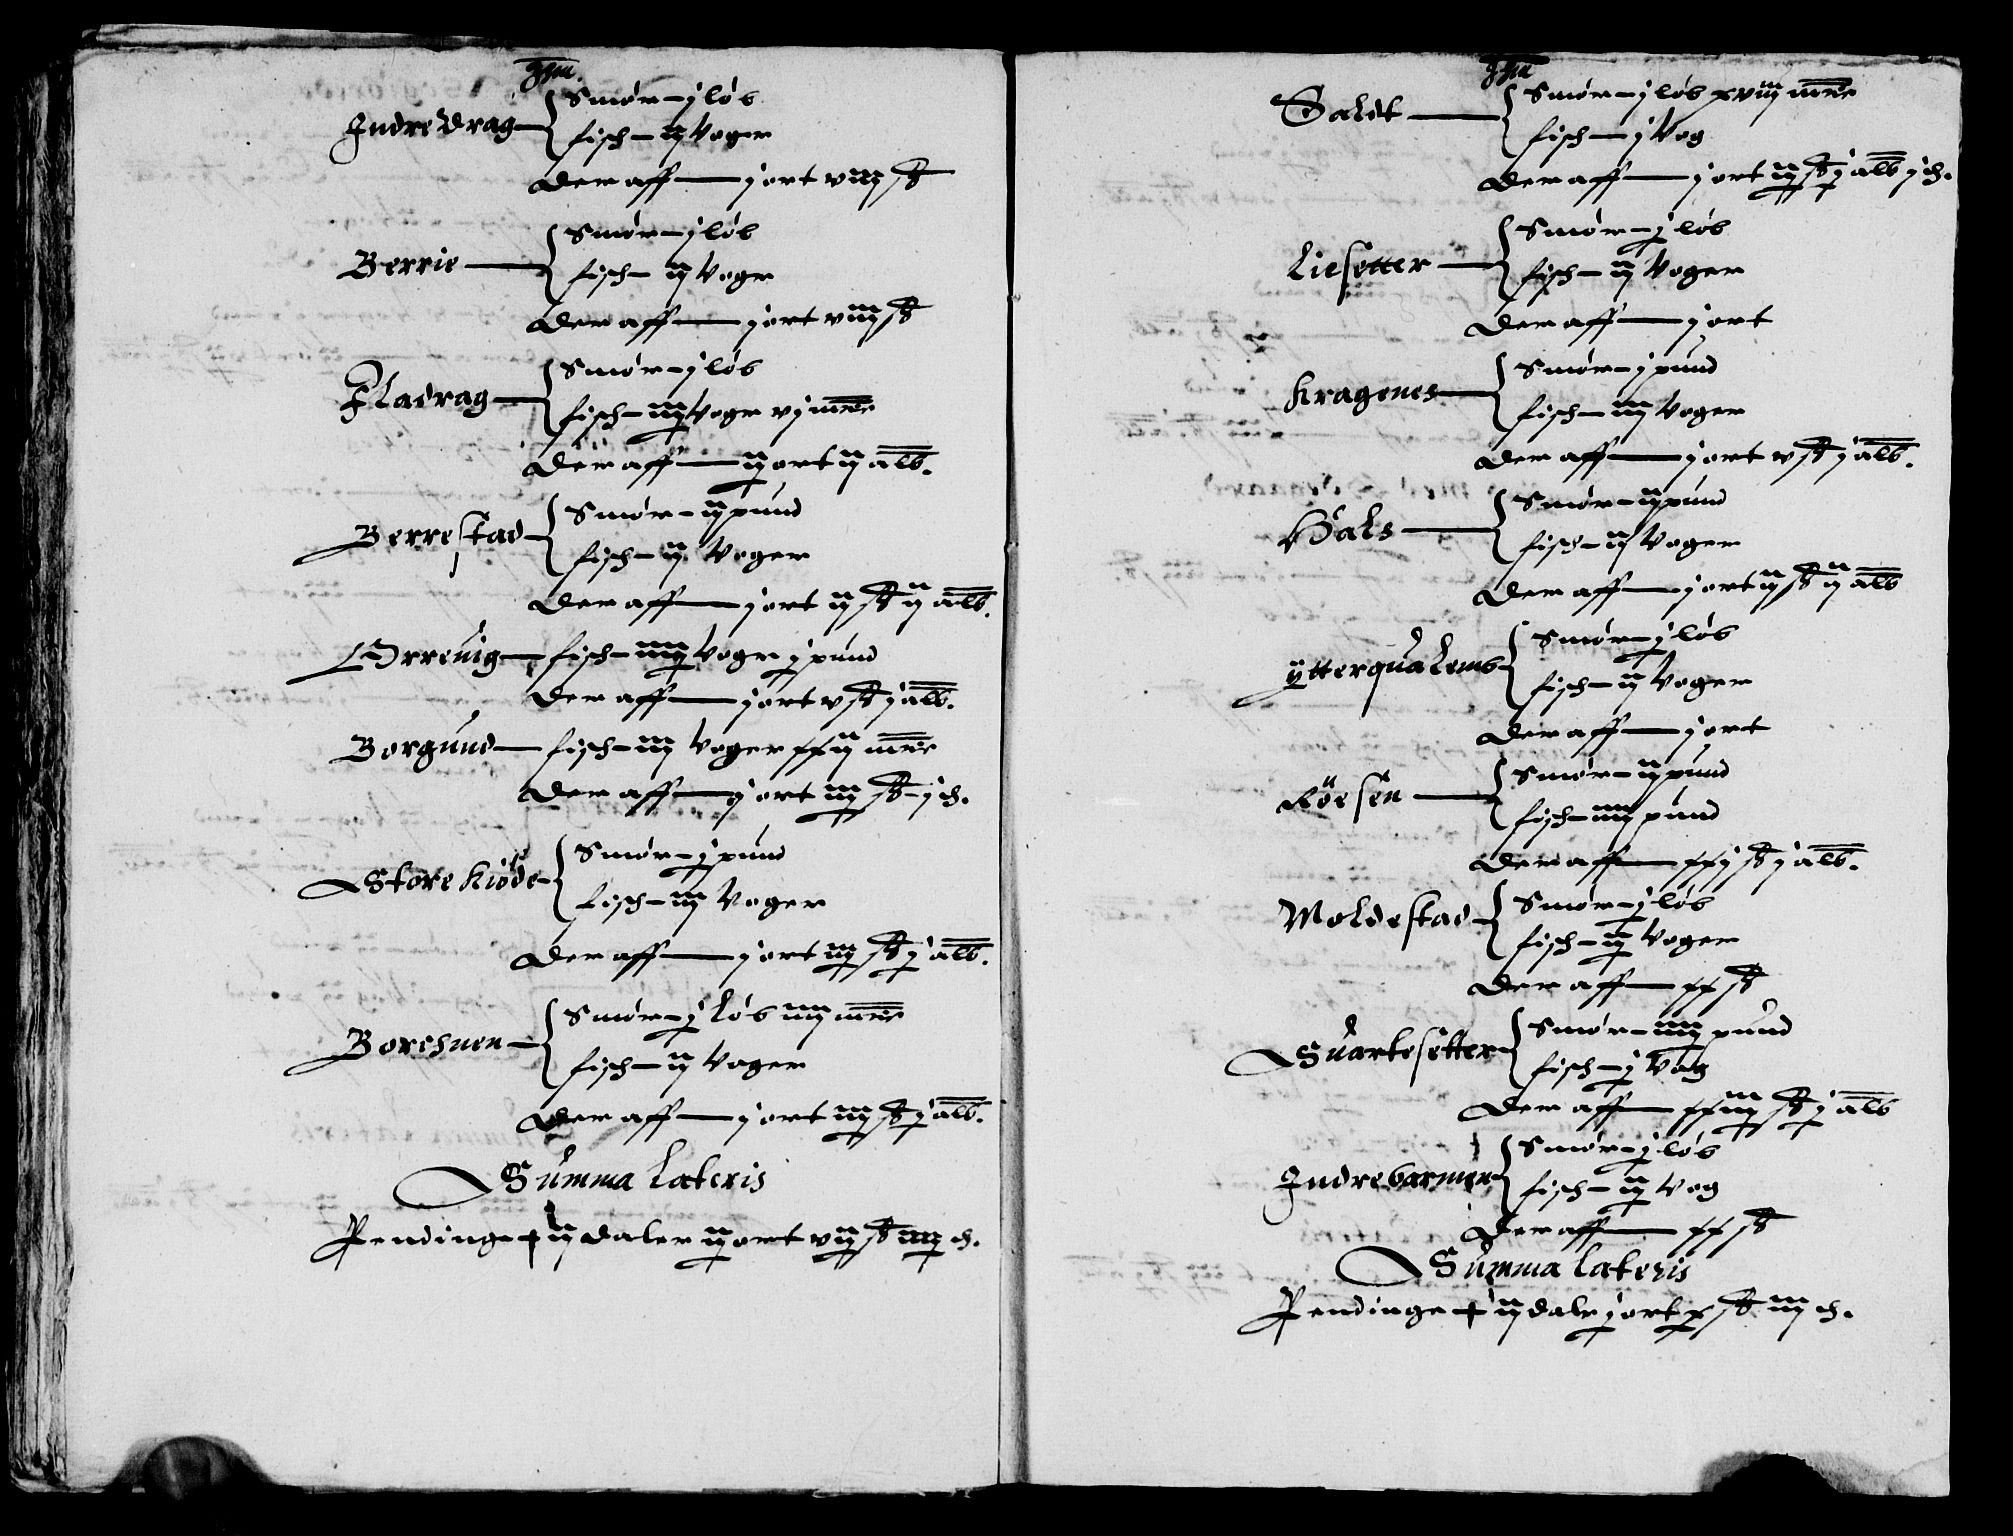 Indre Drag
Smør - j løb
fisch - ij Voger
Der aff j ort viij ß
Berrie
Smør - j løb
fisch - ij Voger
Der aff j ort viij ß
Fladrag
Smør - j løb
fisch - iij Voger vj mrk
Der aff ij ort ij alb.
Berrestad
Smør - ij pund
fisch - ij Voger
Der aff j ort ij ß ij alb.
Orreuig fisch - iiij Voger j pund
Der aff j ort v ß j alb.
Borgund fisch - iij Voger xxij mrk
Der aff j ort iij ß - j ch.
Store Kiøde
Smør - j pund
fisch - iij Voger
Der aff j ort iij ß j alb.
Boresuen
Smør - j Løb iiij mrk
fisch - ij Voger
Der aff j ort iij ß j alb.
Summa Lateris
Pendinge ij daler ij ort vij ß iiij ch.
Saldt
Smør - j løb xviij mrk
fisch - j Vog
Der aff j ort ij ß j alb j ch.
Liesetter
Smør - j løb
fisch - ij Voger
Der aff j ort
Kragenes
Smør - j pund
fisch - iij Voger
Der aff j ort v ß j alb.
Hals
Smør - ij pund
fisch - ij Voger
Der aff j ort ij ß ij alb
ytterqualems
Smør - j løb
fisch - ij Voger
Der aff j ort
Röesen
Smør - ij pund
fisch - iiij pund
Der aff xxj ß j alb.
Moldestad
Smør - j løb
fisch - ij Voger
Der aff xx ß
Suartesetter
Smør - iiij pund
fisch - j Vag
Der aff xxiij ß j alb
Indrebarmen
Smør - j løb
fisch - ij Vog
Der aff xx ß
Summa Lateris
Pendinge ij dale j ort x ß iij ch.